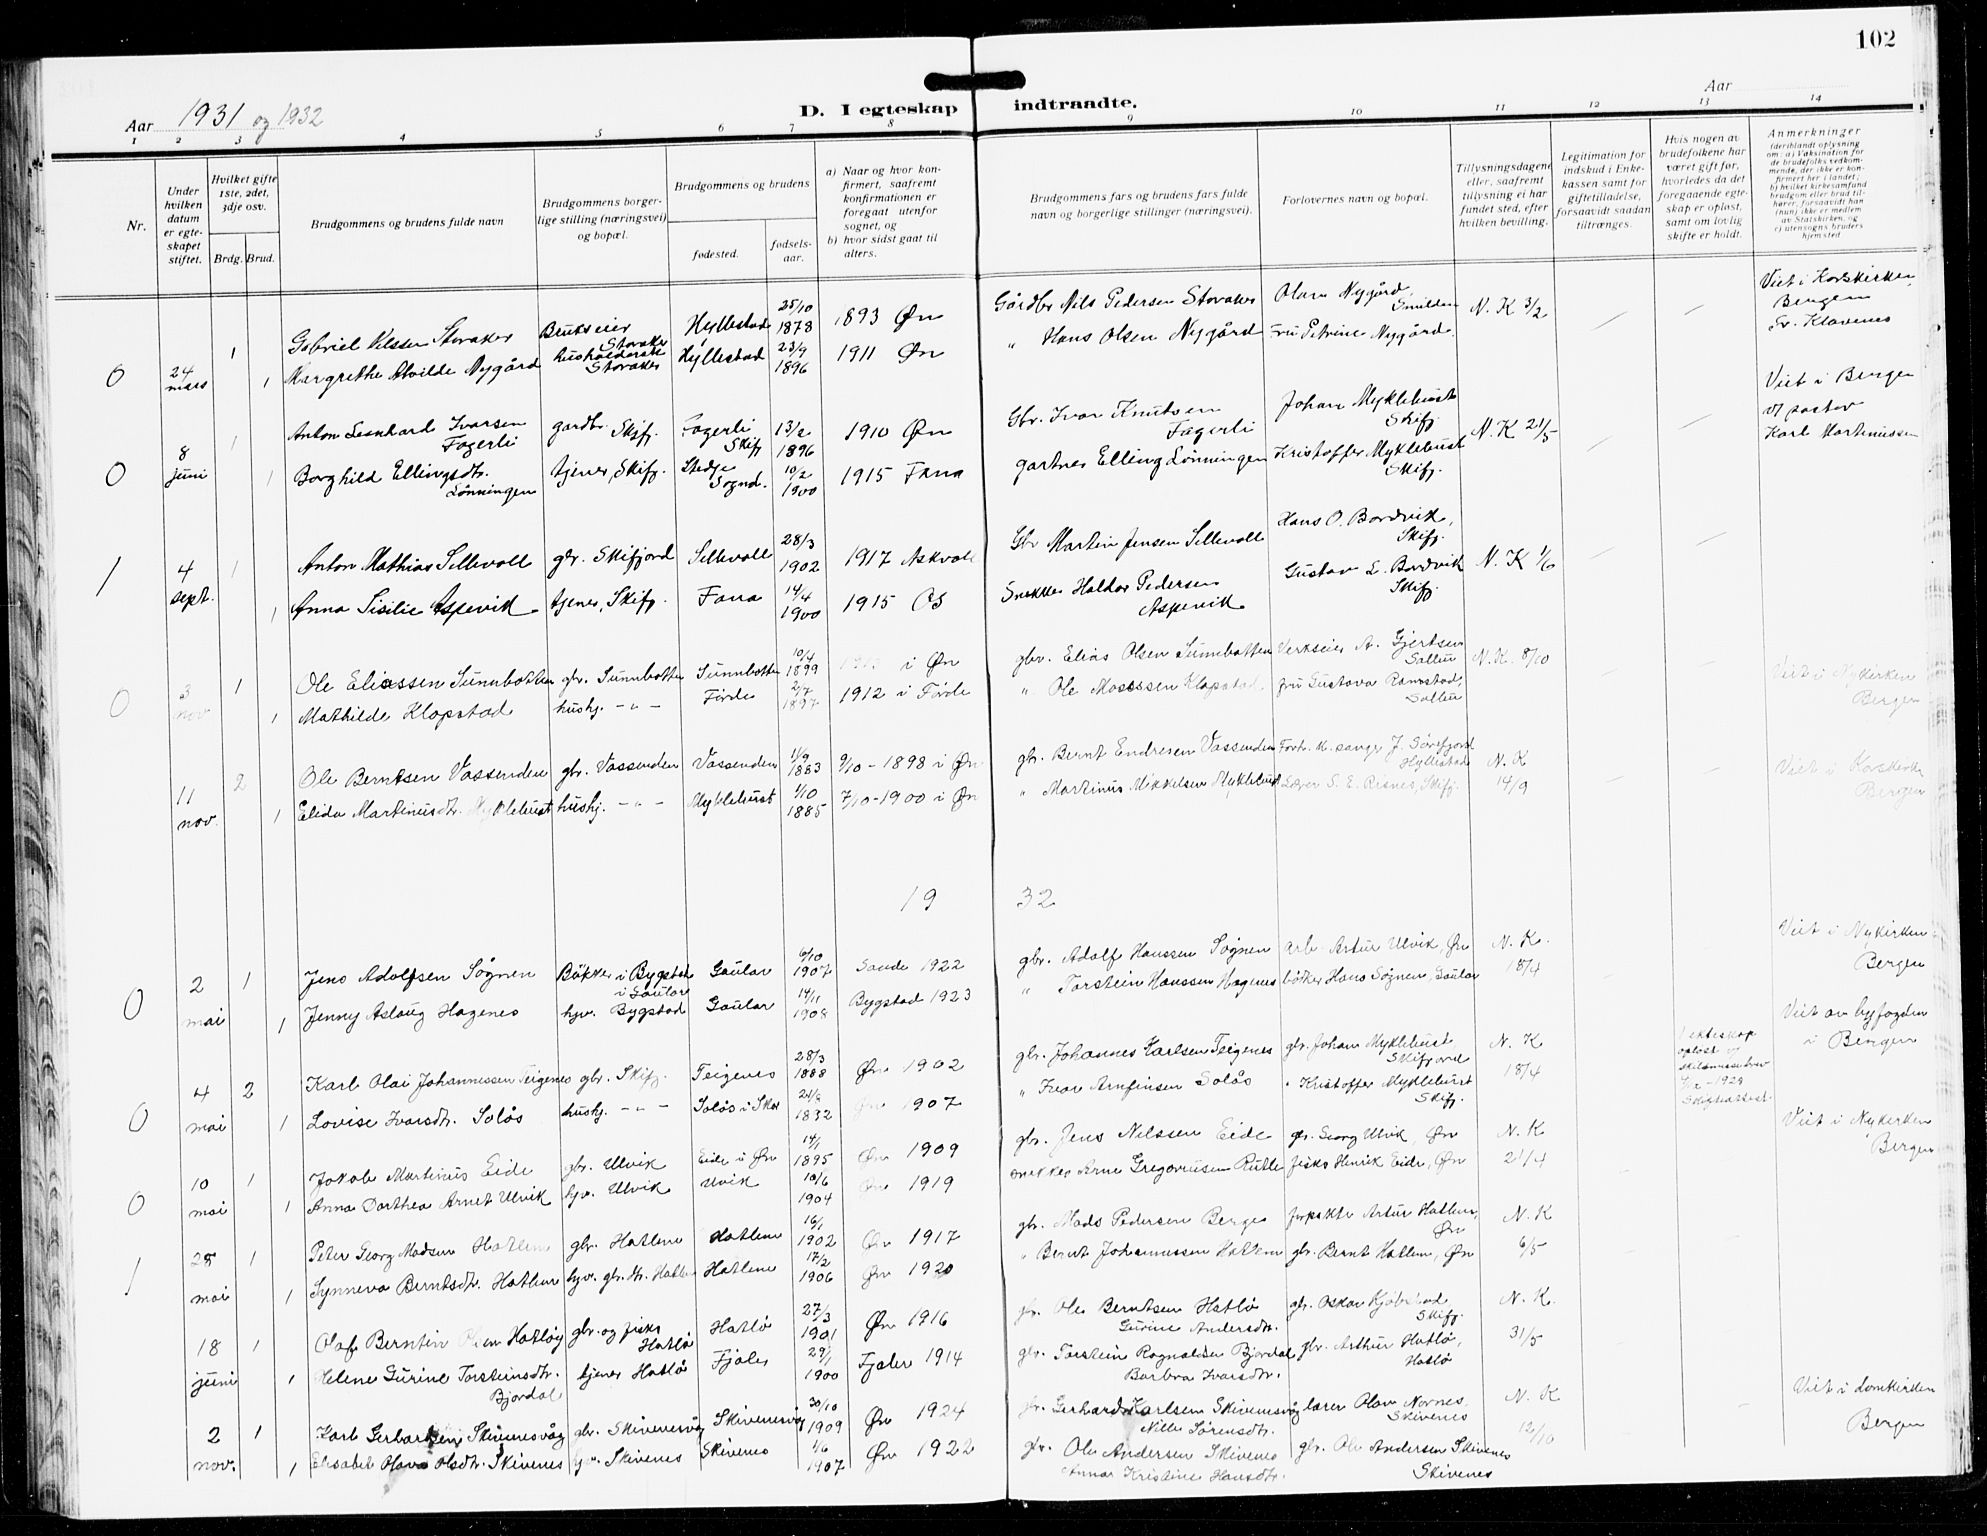 102
Aar 1931 og 1932
D. I egteskap indtraadte.
Aar
1 2 3 4 5 6 7 8 9 10 11 12 13 14
Nr.
Under hvilken datum er egteskapet stiftet.
Hvilket gifte 1ste, 2det, 3dje osv.
Brdg. Brud.
Brudgommens og brudens fulde navn
Brudgommens borgerlige stilling (næringsvei) og bopæl.
Brudgommens og brudens
fødested.
fødselsaar.
a) Naar og hvor konfirmert, saafremt konfirmationen er foregaat utenfor sognet, og
b) hvor sidst gaat til alters.
Brudgommens fars og brudens fars fulde navn og borgerlige stillinger (næringsvei).
Forlovernes navn og bopæl.
Tillysningsdagene eller, saafremt tillysning ei har fundet sted, efter hvilken bevilling.
Legitimation for indskud i Enkekassen samt for giftetilladelse, forsaavidt saadan tiltrænges.
Hvis nogen av brudefolkene har været gift før, hvorledes da det foregaaende egteskap er opløst, samt om lovlig skifte er holdt.
Anmerkninger
(deriblandt oplysning om: a) Vaksination for de brudefolks vedkommende, der ikke er konfirmert her i landet; b) hvilket kirkesamfund brudgom eller brud tilhører, forsaavidt han (hun) ikke er medlem av Statskirken, og c) utensogns bruders hjemsted.
0 24 mars 1 Gabriel Nilssen Storaker Brukseier Storaker Hyllestad 25/10 1878 1893 Øn Gårdbr Nils Pedersen Storaker Olam Nygård, Smilden N. K 3/2 Viet i Korskirken, Bergen
1 Margrethe Alvilde Nygård husholderske Storaker Hyllestad 23/9 1896 1911 Øn " Hans Olsen Nygård Fru Petrine Nygård. Fr. Klavenes
0 8 juni 1 Anton Leonhard Ivarsen Fagerli gardbr. Skifj. Fagerli Skifj 13/2 1896 1910 Øn Gbr. Ivar Knutsen Fagerli Johan Myklebust Skifj. N. K 21/5 Viet i Bergen v/ pastor Karl Martinussen
1 Borghild Ellingsdtr. Lønningen tjener, Skifj. Stedje Sognd. 10/2 1900 1915 Fana gartner Elling Lønningen Kristoffer Myklebust Skifj.
1 4 sept. 1 Anton Mathias Sellevoll gbr. Skifjord Sellevoll 28/3 1902 1917 Askvoll Gbr Martin Jensen Sellevoll Hans O. Bordvik, Skifj. N. K 1/6
1 Anna Sisilie Aspevik tjener, Skifj. Fana 14/4 1900 1915 Os Snekker Haldor Pedersen Aspevik Gustav L. Bordvik Skifj.
0 3 nov 1 Ole Eliassen Sunnbotten gbr. Sunnbotten Sunnbotten 10/4 1899 i Øn gbr. Elias Olsen Sunnbotten Verkseier A. Gjertsen N. K. 8/10 Viet i Nykirken Bergen
1 Mathilde Klopstad hushj. - " - Førde 2/7 1897 1912 i Førde " Ole Mosessen Klopstad, fru Gustava Ramstad,
11 nov. 2 Ole Berntsen Vassenden gbr. Vassenden Vassenden 1/9 1883 9/10 - 1898 i Øn gbr. Bernt Endresen Vassenden J. Sørefjord Hyllestad N. K 14/9 Viet i Korskirk Bergen
1 Elida Martinusdtr. Myklebust hushj. - " - Myklebust 1/10 1885 7/10 - 1900 i Øn " Martinus Mikkelsen Myklebust Lærer S. E. Risnes, Skifj.
19 32
0 2 mai 1 Jens Adolfsen Sognen Bøkker i Bygstad i Gaular Gaular 6/10 1907 Sande 1922 gbr. Adolf Hanssen Sognen arb. Artur Ulvik, Øn N. K. 18/4 Viet i Nykirken Bergen
1 Jenny Aslaug Hagenes hjv. Bygstad Gaular 14/11 1908 Bygstad 1923 " Torstein Hanssen Hagenes bøkker Hans Sognen, Gaular
0 4 mai 2 Karl Olai Johannessen Teigenes gbr. Skifj. Teigenes 28/3 1888 Øn 1902 gbr. Johannes Karlsen Teigenes gbr. Johan Myklebust Skifjord N. K 18/4 1 ekteskap opløst v/ skilsmissebrev - 1928 Skifteattest. Viet av byfogden i Bergen
1 Lovise Ivarsdtr. Solås hushj. - " - Solås i Skifj 1832 Øn 1907 " Ivar Arnfinsen Solås " Kristoffer Myklebust Skifj.
0 10 mai 1 Jakob Martinus Eide gbr. Ulvik Eide i Øn 14/1 1895 Øn 1909 gbr. Jens Nilssen Eide gbr. Georg Ulvik, Øn N. K 21/4 Viet i Nykirken Bergen
1 Anna Dorthea Arnet Ulvik hjv. Ulvik Ulvik 10/6 1904 Øn 1919 snekker Arne Gregoriusen Rutle fisker Henrik Eide, Øn
1 28 mai 1 Peter Georg Madsen Hatlem gbr. Hatlem Hatlem 16/1 1902 Øn 1917 gbr. Mads Pedersen Berge Artur Hatlem, Øn N. K 6/5
1 Synneva Berntsdtr. Hatlem hjv. gbr. dtr. Hatlem Hatlem 17/2 1906 Øn 1920 " Bernt Johannessen Hatlem gbr. Bernt Hatlem, Øn
18 juni 1 Olaf Berntin Olsen Hatløy gbr. og fisker Hatlø Hatlø 27/3 1901 Øn 1916 gbr. Ole Berntsen Hatlø Gurine Andersdtr. gbr. Oskar Kjøbstad Skifj. N. K. 31/5
1 Helene Gurine Torsteinsdtr. Bjordal tjener Hatlø Fjaler 29/1 1900 Fjaler 1914 gbr. Torstein Ragnaldsen Bjordal Barbra Ivarsdtr. gbr. Arthur Hatlø, Hatlø
2 nov. 1 Karl Gerhardsen Skivenesvåg gbr. Skivenesvåg Skivenesvåg 30/10 1909 Øn 1924 gbr. Gerhard Karlsen Skivenesvåg Nille Sørensdtr. lærer Olav Nornes, Skivenes N. K 12/10 Viet i Domkirken Bergen
1 Elisabet Olava Olsdtr. Skivenes hjv. Skivenes Skivenes 1/6 1907 Øn 1922 gbr. Ole Andersen Skivenes Anna Kristine Hansdtr. gbr. Ole Andersen Skivenes Skivenes